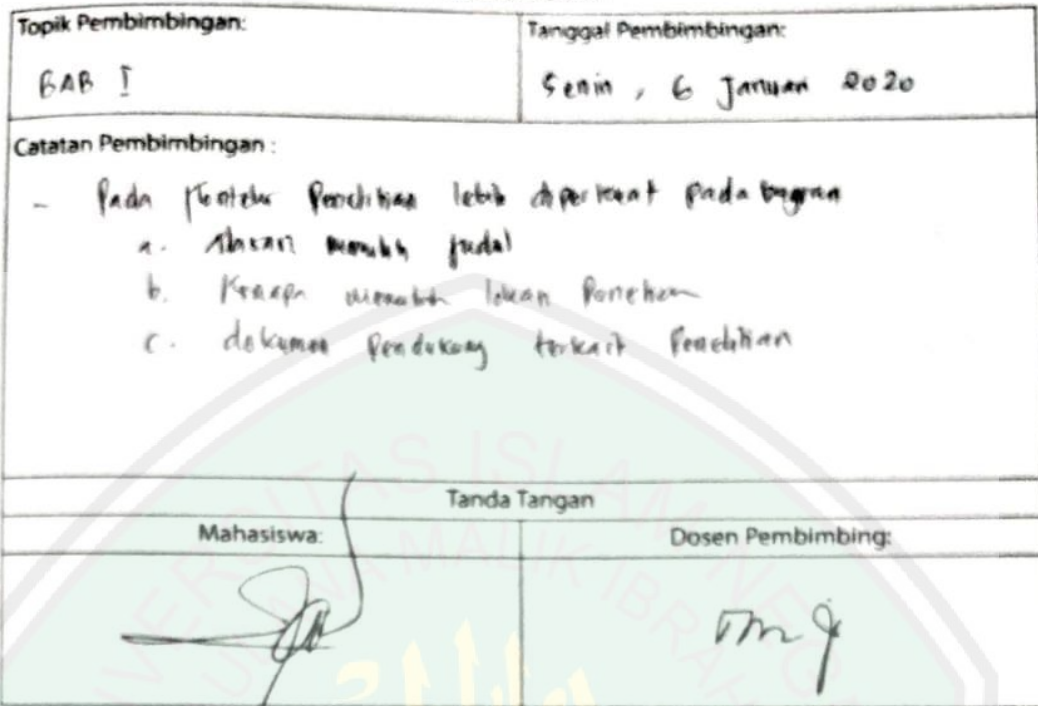 Topik Pembimbingan:
Tanggal Pembimbingan:
BAB I
Senin, 6 Januari 2020
Catatan Pembimbingan :
- Pada Konteks Penelitian lebih diperkuat pada bagian
a. Alasan memilih judul
b. Kenapa memilih lokasi Penelitian
c. dokumen Pendukung terkait Penelitian
Tanda Tangan
Mahasiswa:
Dosen Pembimbing: